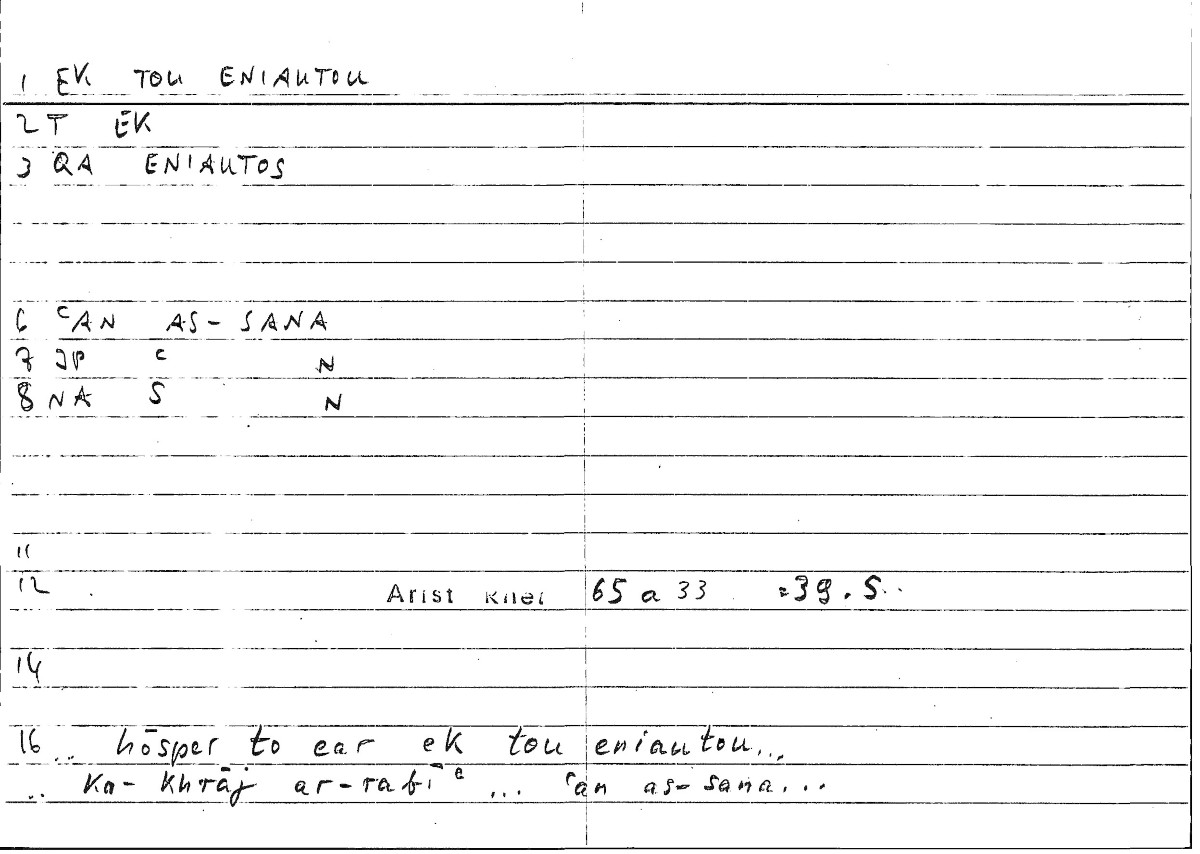 1 EK TOU ENIAUTOU
2 T EK
3 QA ENIAUTOS
6 ʿAN AS-SANA
7 JP ʿ N
8 NA S N
11
12 Arist Rhet 65 a 33 = 39.5..
14
16 .. hōsper to ear ek tou eniautou...
.. Ka-khrāj ar-rabīʿ ... ʿan as-sana...